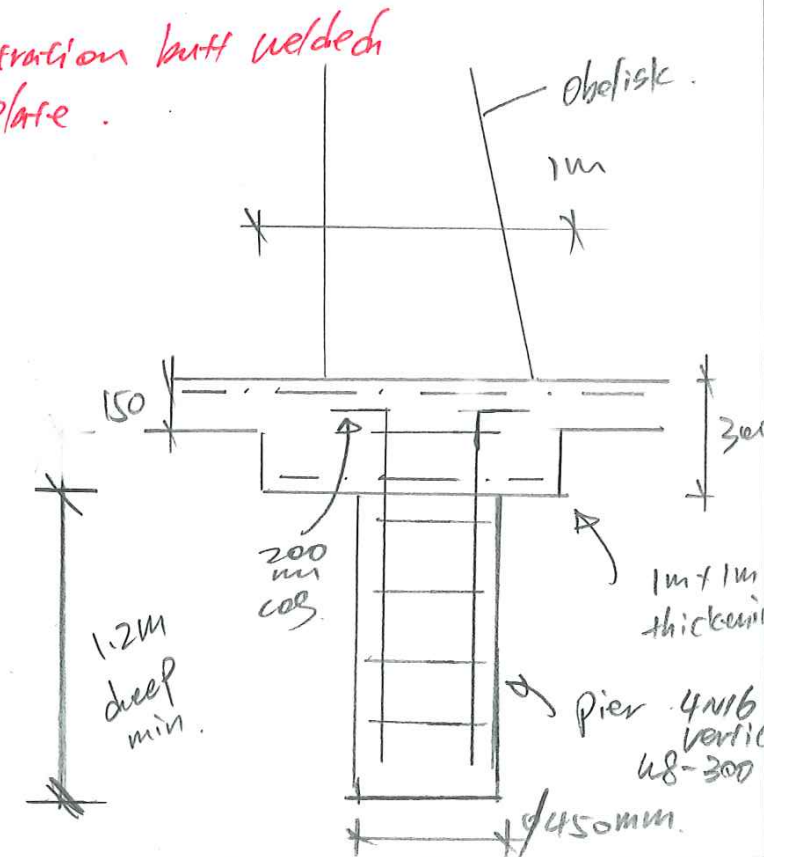 tration butt welded
plate .
Obelisk .
1m
150
300
200
mm
cog.
1m x 1m
thickenin
1.2m
deep
min.
pier 4N16
vertic
N8-300
φ450mm.